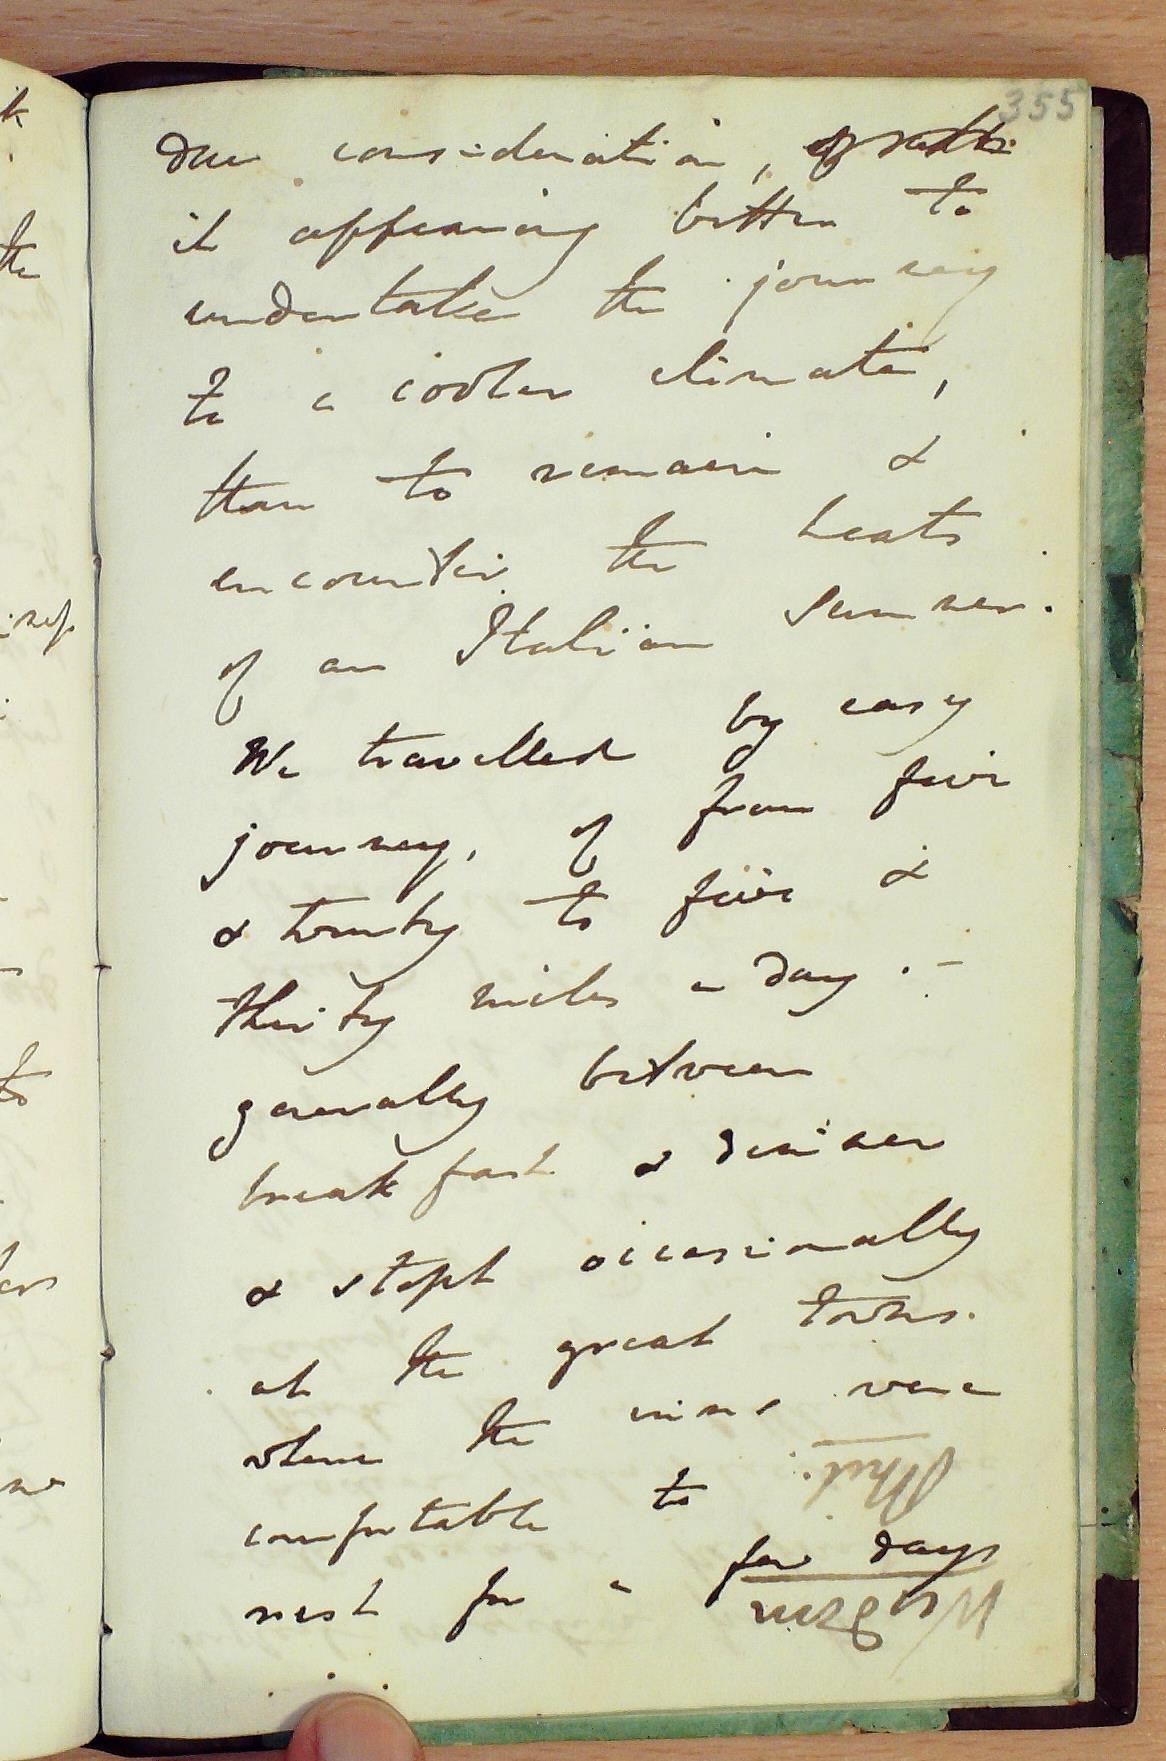 355
due consideration,
it appearing better to
undertake the journey
to a cooler climate,
than to remain &
encounter the heats
of an Italian summer.
We travelled by easy
journeys, of from five
& twenty to five &
thirty miles a day. -
generally between
breakfast & dinner
& stopt occasionally
at the great towns.
where the inns were
comfortable to
rest for a few days
Windsor